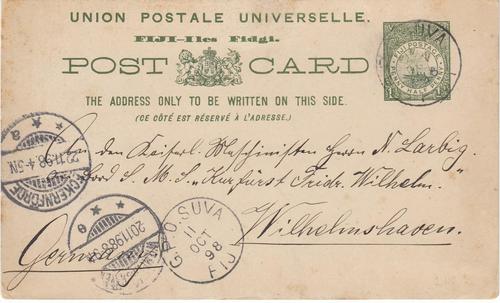 UNION POSTALE UNIVERSELLE.
FIJI-Iles Fidgi.
POST CARD
FIJI POSTAGE
PENNY HALF PENNY
SUVA
THE ADDRESS ONLY TO BE WRITTEN ON THIS SIDE.
(CE CÔTÉ EST RÉSERVÉ À L'ADRESSE.)
An den Kaiserl. Maschinisten Herrn N. Larbig.
an Bord S. M. S. "Kurfürst Fridr. Wilhelm."
Wilhelmshaven.
Germany
ECKERNFÖRDE
22.11.98. 4-5N.
a
20.11.98.8-9
e
G.P.O. SUVA
11
OCT
98
FIJI